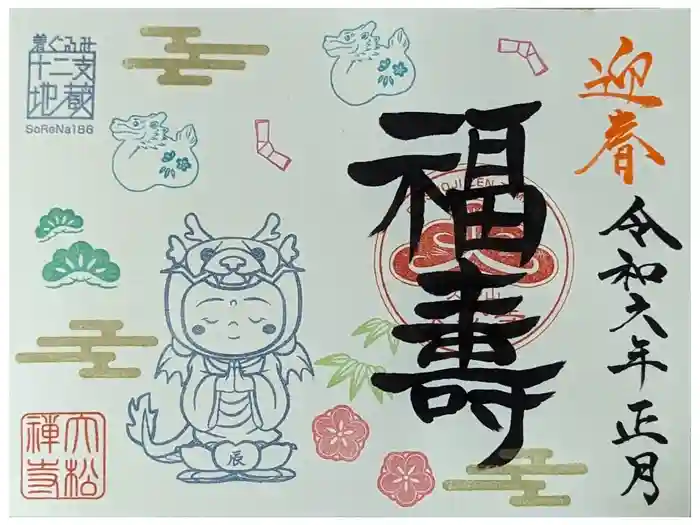 迎春
令和六年正月
福壽
着ぐるみ
十二支
地蔵
SoReNa186
辰
大松
禅寺